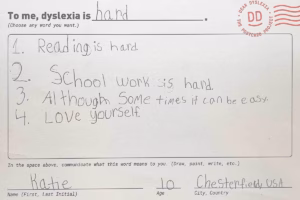 To me, dyslexia is hard.
(Choose any word you want.)
DEAR DYSLEXIA
DD
THE POSTCARD PROJECT
1. Reading is hard
2. School work is hard
3. Although some times it can be easy
4. Love yourself
In the space above, communicate what this word means to you. (Draw, paint, write, etc.)
Katie 10 Chesterfield USA
Name (First, Last Initial) Age City, Country